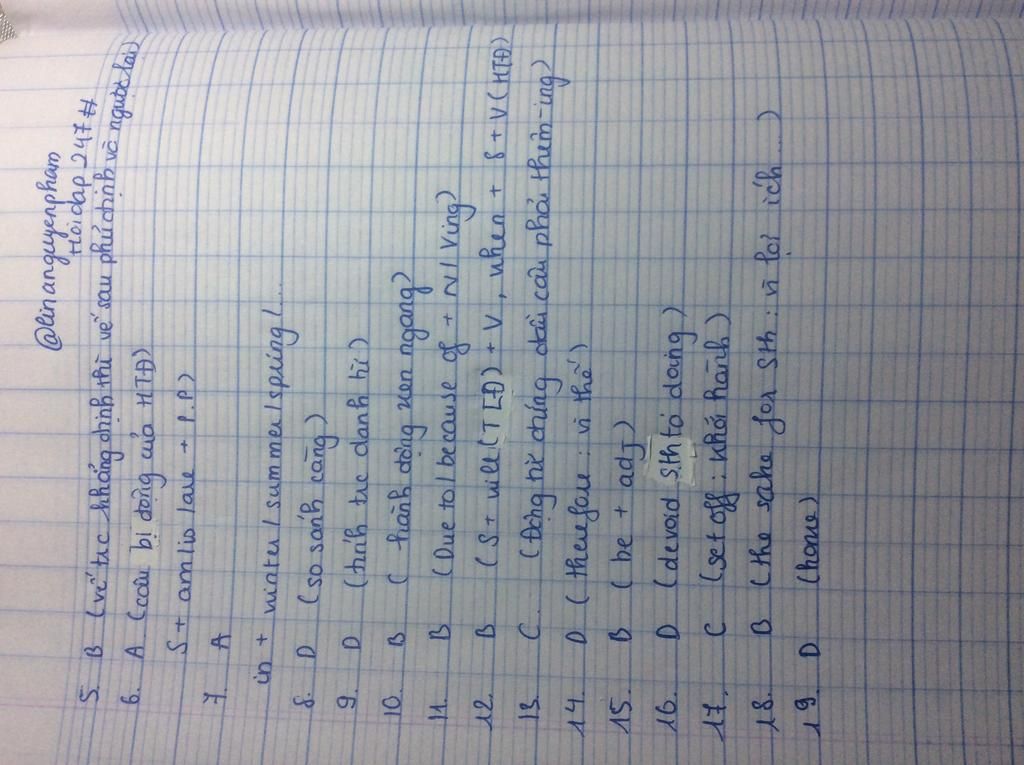 @linanguyenpham
Hỏi đáp 247 #
5. B (vế trc khẳng định thì vế sau phủ định và ngược lại)
6. A (câu bị động của HTĐ)
S + am/is/are + P.P)
7. A
in + winter/summer/spring/...
8. D (so sánh càng)
9. D (tính trc danh từ)
10. B (hành động xen ngang)
11. B (Due to/because of + N/Ving)
12. B (S + will (TLĐ) + V, when + S + V (HTĐ)
13. C (Động từ đứng đầu câu phải thêm -ing)
14. D (therefore: vì thế)
15. B (be + adj)
16. D (devoid sth to doing)
17. C (set off: khởi hành)
18. B (the sake for sth: vì lợi ích ...)
19. D (home)